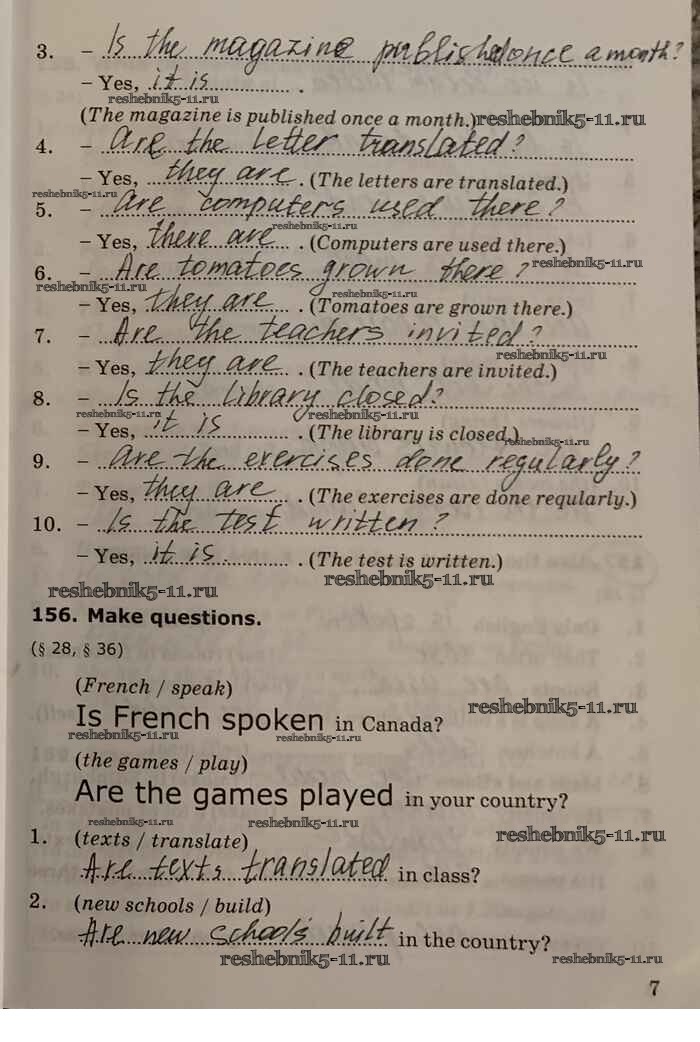 3. – Is the magazine published once a month?
– Yes, it is.
reshebnik5-11.ru
(The magazine is published once a month.) reshebnik5-11.ru
4. – Are the letter translated?
– Yes, they are. (The letters are translated.)
reshebnik5-11.ru
5. – Are computers used there?
reshebnik5-11.ru
– Yes, there are. (Computers are used there.)
6. – Are tomatoes grown there? reshebnik5-11.ru
reshebnik5-11.ru reshebnik5-11.ru
– Yes, they are. (Tomatoes are grown there.)
7. – Are the teachers invited?
reshebnik5-11.ru
– Yes, they are. (The teachers are invited.)
8. – Is the library closed?
reshebnik5-11.ru reshebnik5-11.ru
– Yes, it is. (The library is closed.) reshebnik5-11.ru
9. – Are the exercises done regularly?
– Yes, they are. (The exercises are done reqularly.)
10. – Is the test written?
– Yes, it is. (The test is written.)
reshebnik5-11.ru reshebnik5-11.ru
156. Make questions.
(§ 28, § 36)
(French / speak)
reshebnik5-11.ru
Is French spoken in Canada?
reshebnik5-11.ru reshebnik5-11.ru
(the games / play)
Are the games played in your country?
reshebnik5-11.ru reshebnik5-11.ru reshebnik5-11.ru
1. (texts / translate)
Are texts translated in class?
2. (new schools / build)
Are new schools built in the country?
reshebnik5-11.ru reshebnik5-11.ru
7